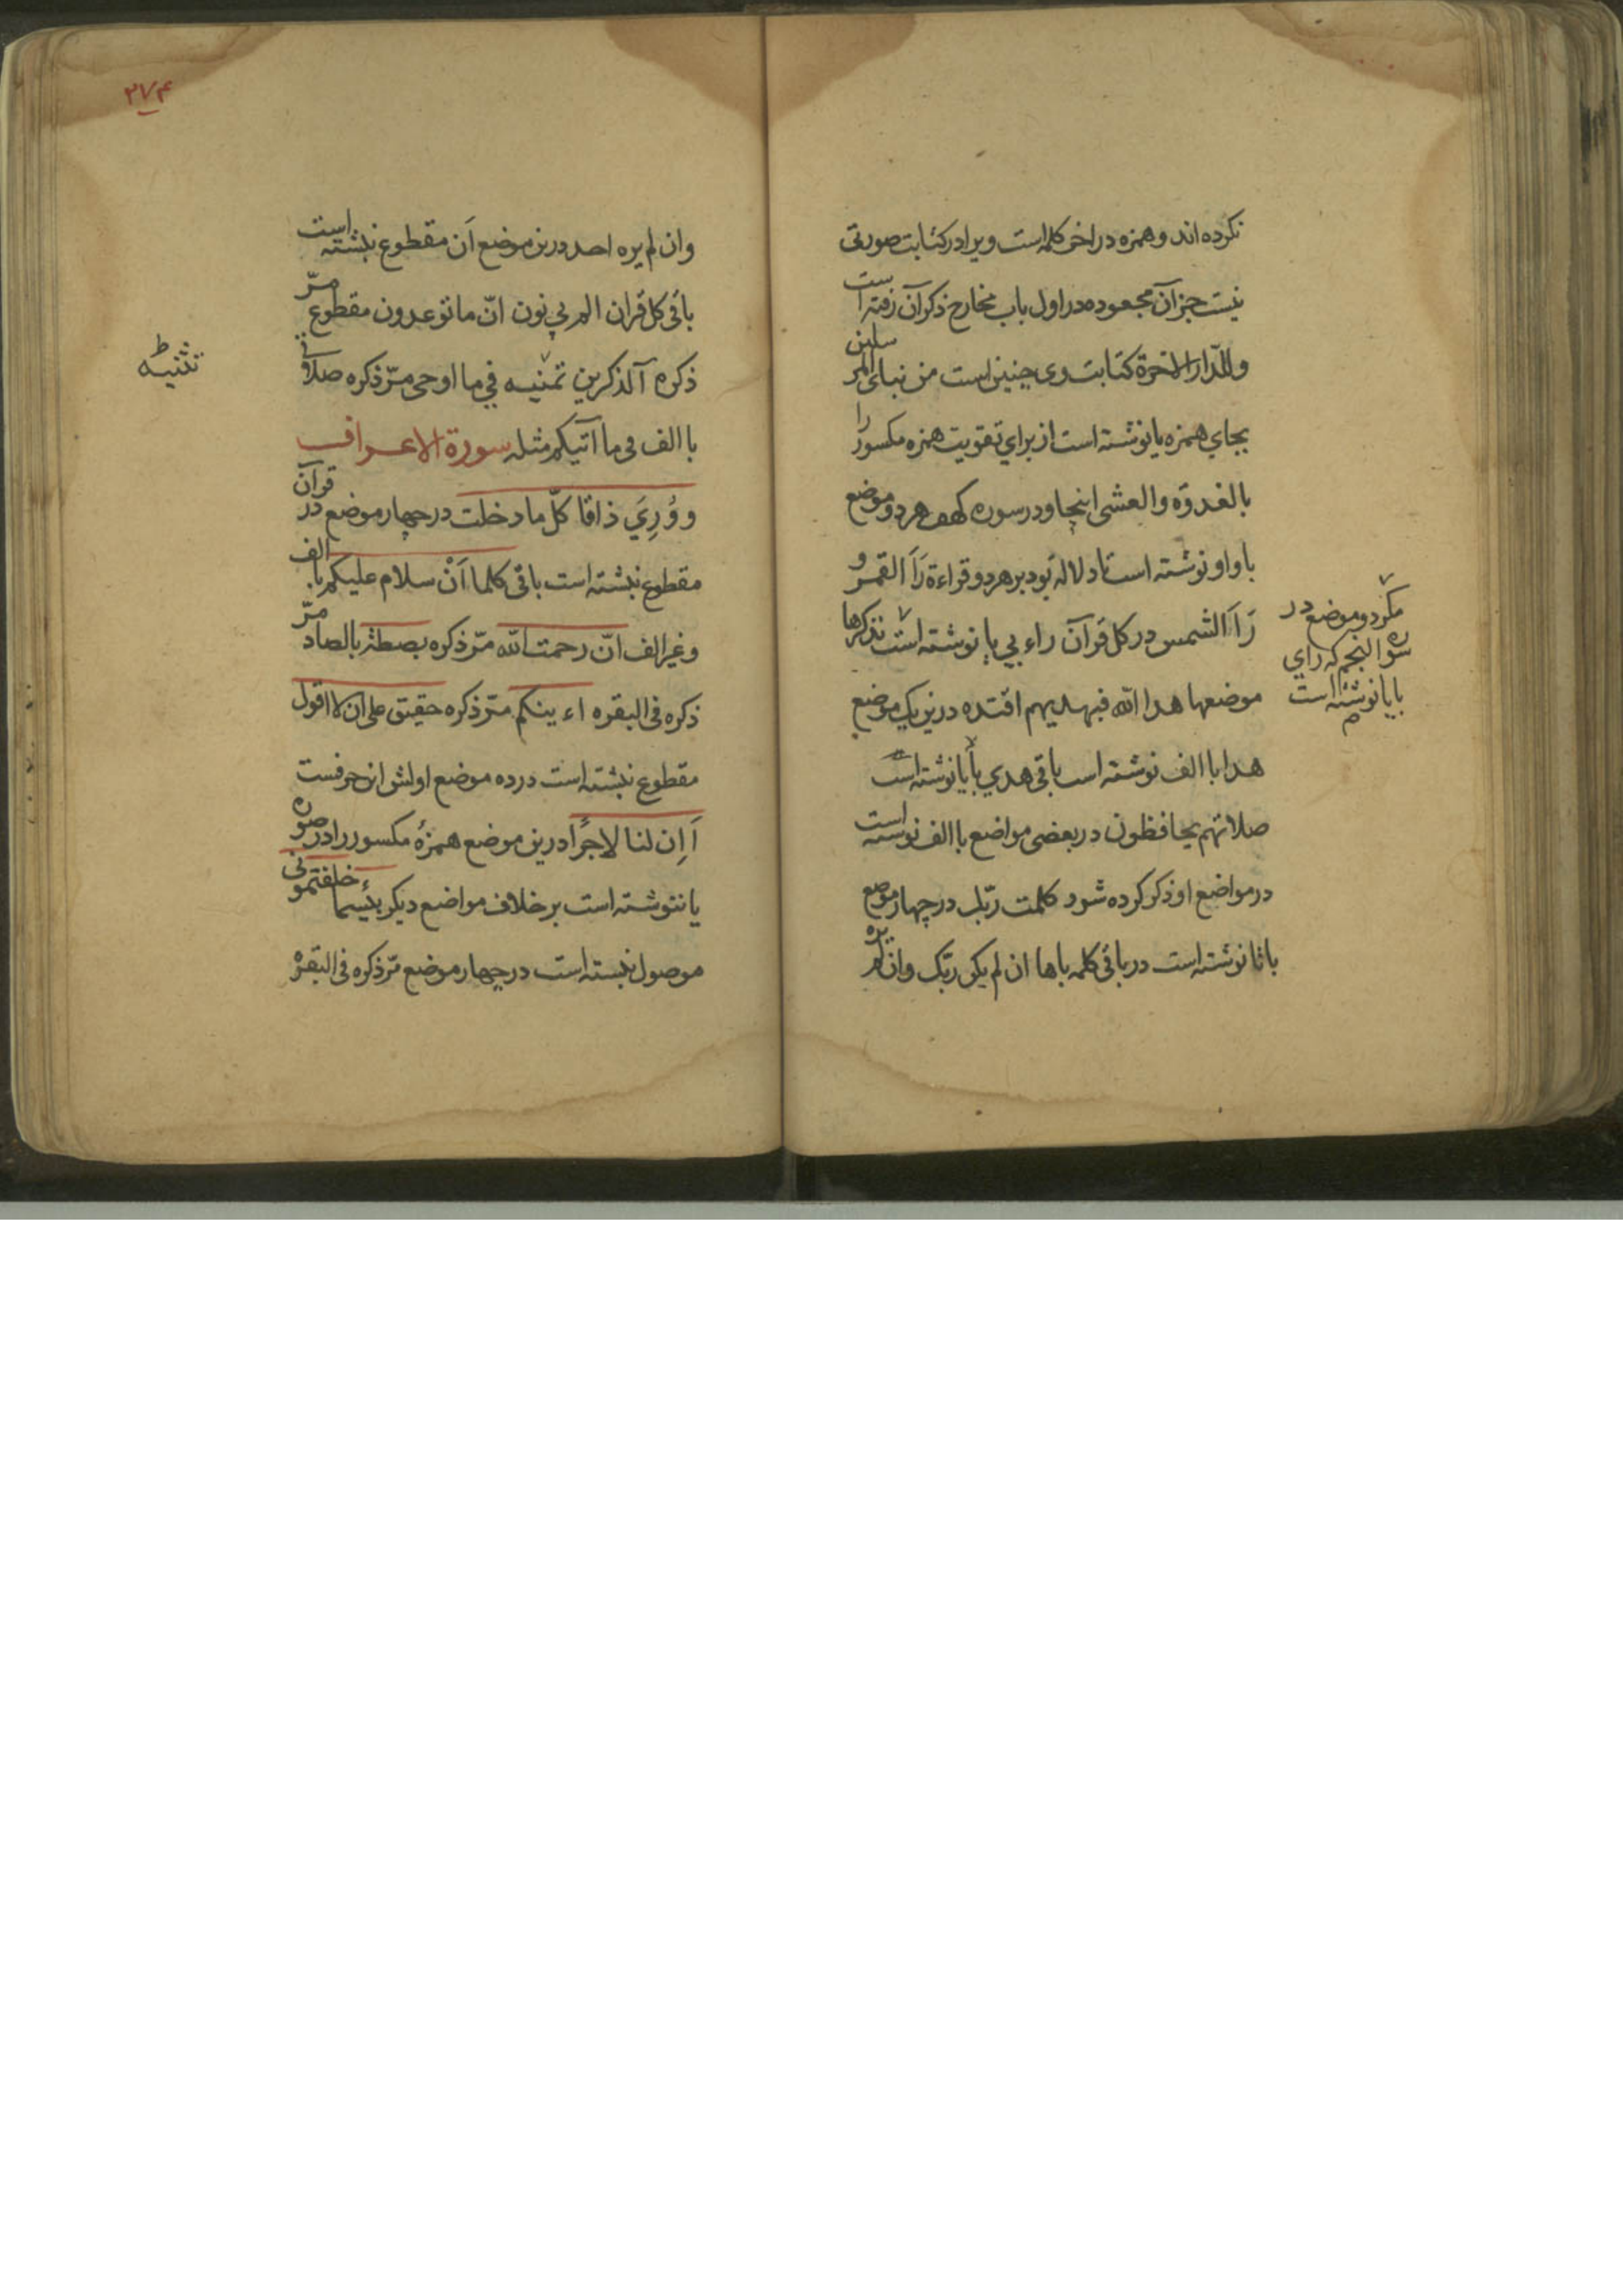 نکرده اند و همزه در اخر کلمه است و یرا در کتابت صورتی
نیست جز آن مجعوده در اول باب مخارج ذکر آن رفته است
وللدّار الاخرة کتابت وی چنین است من نبای المرسلین
بجای همزه یا نوشته است از برای تقویت همزه مکسور را
بالغدوٰة والعشی اینجا و در سوره کهف هر دو موضع
با واو نوشته است تا دلاله بود بر هر دو قراءة رَاَ القمر و
رَاَ الشمس در کل قرآن راء بی یا نوشته است نذکرها
مکر دو موضع در
سورة النجم که رای
با یا نوشته است
م
موضعها هدا الله فبهدیهم اقتده درین یک موضع
هدا با الف نوشته است باقی هدی با یا نوشته است
صلاتهم یحافظون در بعضی مواضع با الف نوشته است
در مواضع او ذکر کرده شود کلمت ربّک در چهار موضع
با تا نوشته است در باقی کلمه باها ان لم یکن ربّک وان لم یره
٢٧۴
وان لم یره احد درین موضع اَن مقطوع نبشته است
باقی کل قران الم بی نون انّ ما توعدون مقطوع مرّ
ذکره آلذکرین تمنیه فی ما اوحی مرّ ذکره صلاتی
تثنیه ط
با الف فی ما آتیکم مثله سورة الاعراف
و وُرِیَ ذاقا کلّ ما دخلت در چهار موضع در قرآن
مقطوع نبشته است باقی کلما اَنْ سلام علیکم با الف
و غیر الف انّ رحمت الله مرّ ذکره بصطة بالصاد مرّ
ذکره فی البقره اء ینکم مرّ ذکره حقیق علی ان لا اقول
مقطوع نبشته است در ده موضع اولش این حرفست
اَاِن لنا لاجرًا درین موضع همزهٔ مکسور را در صورة
یا ننوشته است بر خلاف مواضع دیکر بئسما خلفتمونی
موصول نبشته است در چهار موضع مرّ ذکره فی البقرة